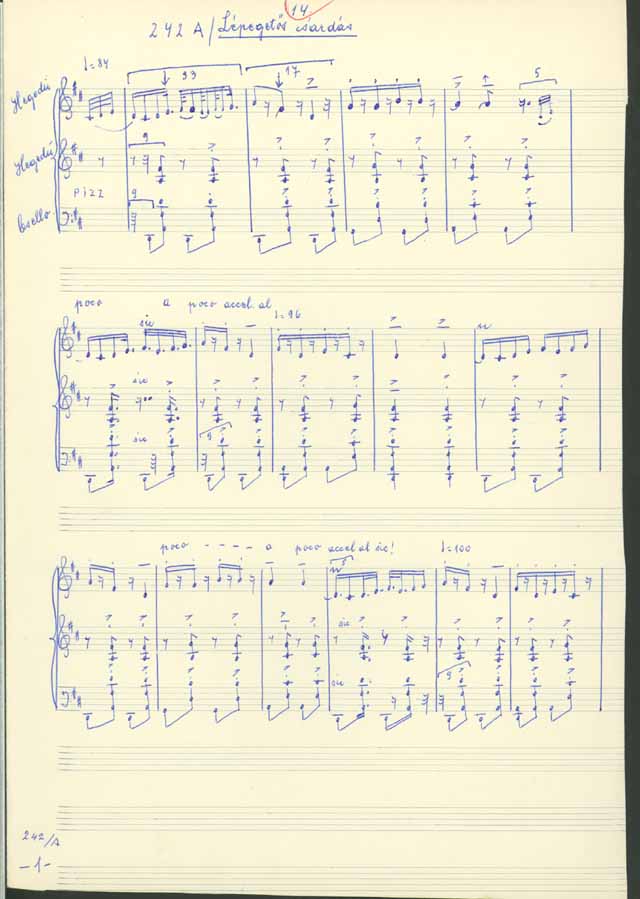 14
242 A/ Lépegetős csárdás
♩=84
93
17
5
Hegedű
Hegedű
9
pizz
9
Csello
poco a poco accel. al
♩=96
sic
sic
sic
9
poco - - - - a poco accel. al sic!
♩=100
5
sic
sic
9
242/A
-1-